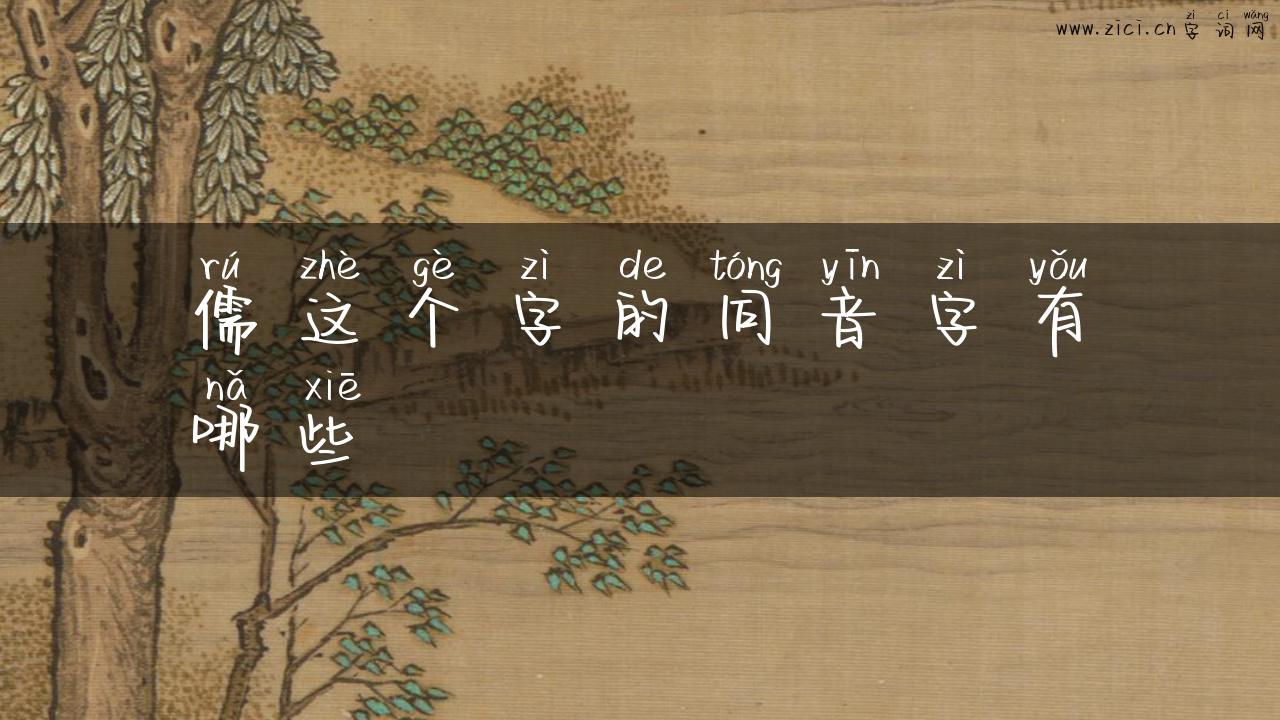 zì cí wǎng
www.zici.cn 字词网
rú zhè gè zì de tóng yīn zì yǒu
儒这个字的同音字有
nǎ xiē
哪些